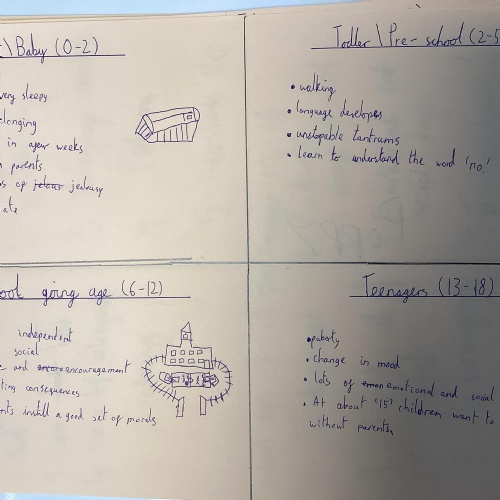 \Baby (0-2)
very sleepy
longing
in a few weeks
parents
of jelous jealousy
ate
Todler \ Pre-school (2-5
• walking
• language developes
• unstopable tantrums
• learn to understand the word 'no!'
going age (6-12)
independent
social
and encouragement
consequences
install a good set of morals
Teenagers (13-18)
• pubaty
• change in mood
• lots of emon emotional and social
• At about '15' children want to
without parents